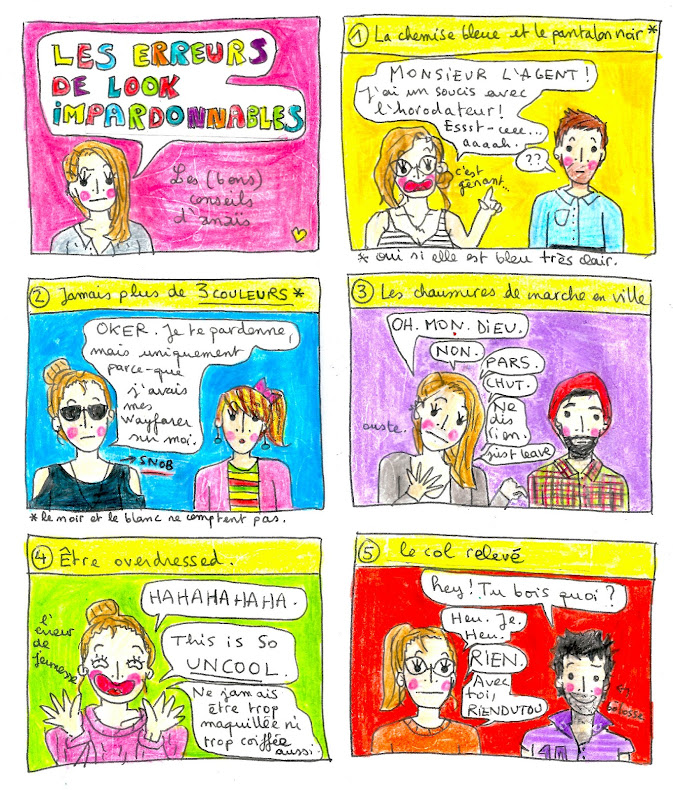 LES ERREURS
DE LOOK
IMPARDONNABLES
Les (bons)
conseils
d'anaïs
1 La chemise bleue et le pantalon noir*
MONSIEUR L'AGENT!
J'ai un soucis avec
l'horodateur!
Essst-ceee...
aaaah.
??
c'est
gênant...
* oui si elle est bleu très clair.
2 Jamais plus de 3 COULEURS*
OKER. Je te pardonne,
mais uniquement
parce-que
j'avais
mes
Wayfarer
sur moi.
→ SNOB
*le noir et le blanc ne comptent pas.
3 Les chaussures de marche en ville
OH. MON. DIEU.
NON.
PARS.
CHUT.
Ne
dis
rien.
just leave
ouste.
4 Être overdressed.
HAHAHAHAHA.
l'erreur
de
jeunesse
This is so
UNCOOL.
Ne jamais
être trop
maquillée ni
trop coiffée
aussi.
5 le col relevé
hey! Tu bois quoi?
Heu. Je.
Heu.
RIEN.
Avec
toi,
RIENDUTOU